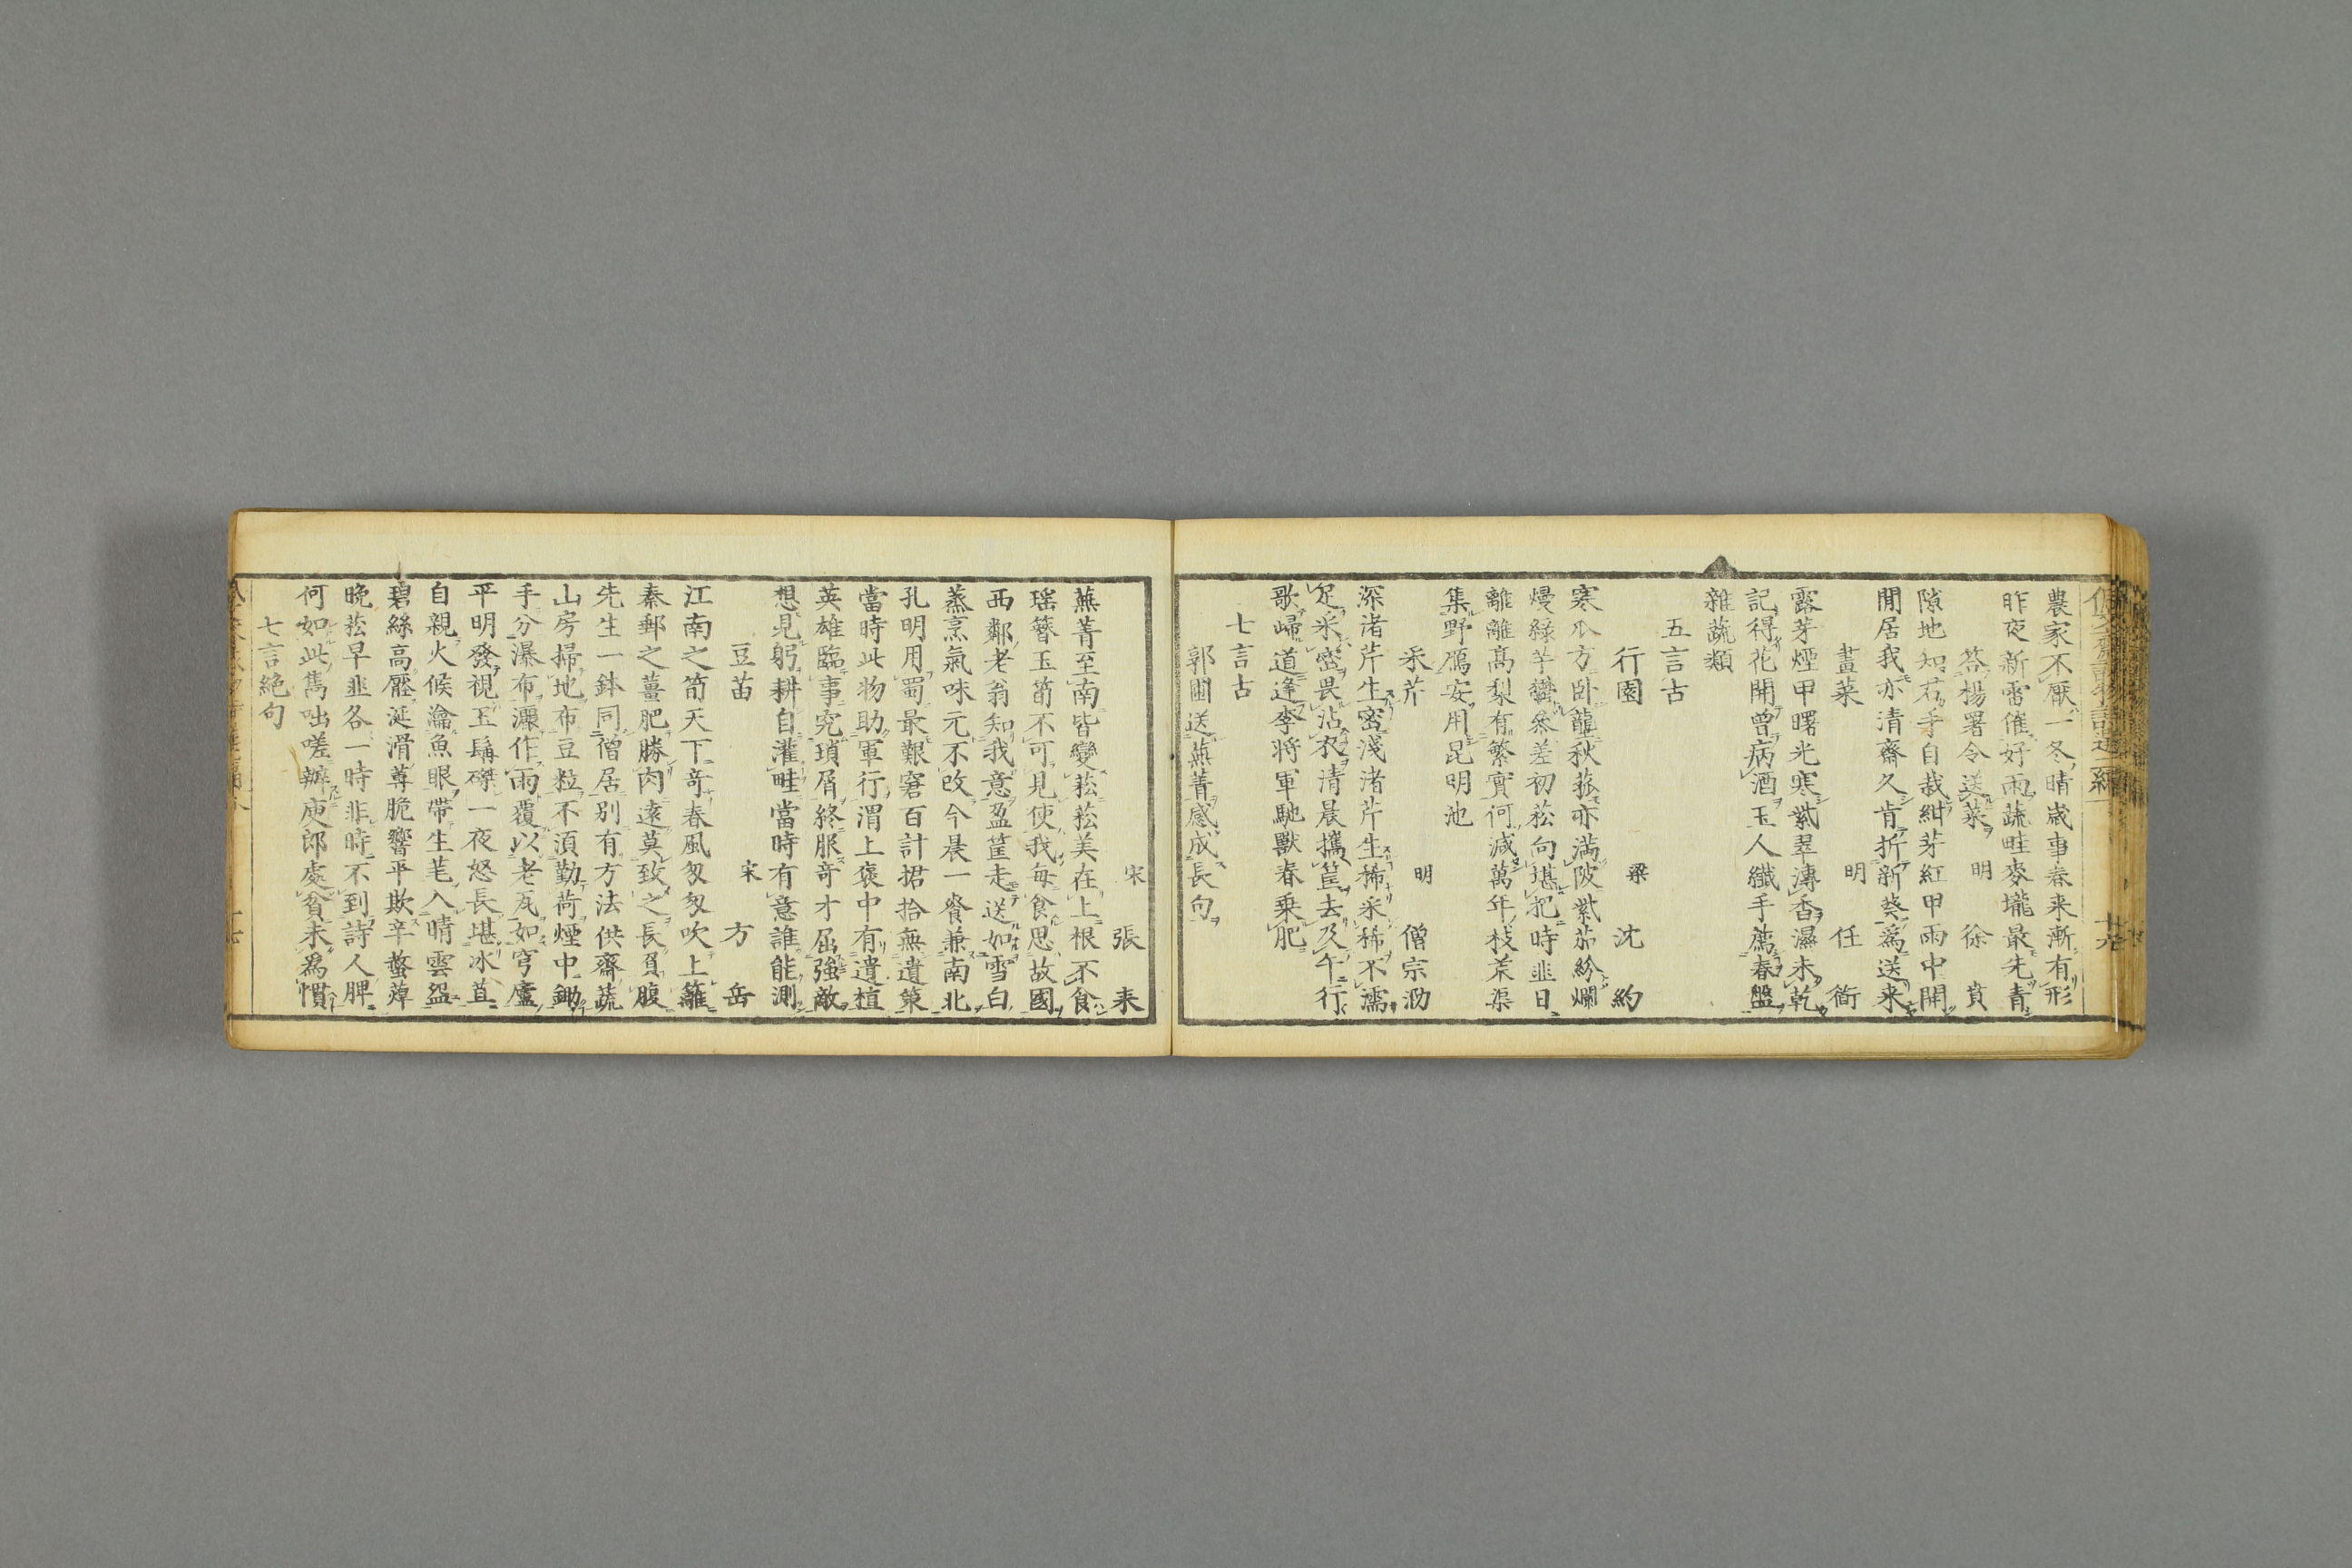 農家不厭一冬晴歳事春来漸有形
昨夜新雷催好雨蔬畦麥壠最先青
荅楊署令送菜 明 徐賁
隙地知君手自栽紺芽紅甲雨中開
閒居我亦清齋久肯折新葵為送来
畫菜 明 任衜
露芽煙甲曙光寒紫翠漙香濕未乾
記得花開曾病酒玉人纖手薦春盤
雜蔬類
五言古
行園 梁 沈約
寒瓜方卧龍秋菰亦満陂紫茄紛爛
熳緑芋欝參差初菘向堪把時韭日
離離髙梨有繁實何減萬年枝荒渠
集野鴈安用昆明池
采芹 明 僧宗泐
深渚芹生宻淺渚芹生稀采稀不濡
足采宻畏沾衣清晨攜筐去及午行
歌歸道逢李将軍馳獸春乗肥
七言古
郭圃送蕪菁感成長句
宋 張耒
蕪菁至南皆變菘菘美在上根不食
瑶簪玉筯不可見使我毎食思故國
西鄰老翁知我意盈筐走送如雪白
蒸烹氣味元不改今晨一餐兼南北
孔明用蜀最艱窘百計捃拾無遺策
當時此物助軍行渭上褒中有遺植
英雄臨事究瑣屑終服竒才屈強敵
想見躬耕自灌畦當時有意誰能測
豆苗 宋 方岳
江南之筍天下竒春風匆匆吹上籬
秦郵之薑肥勝肉逺莫致之長負腹
先生一鉢同僧居别有方法供齋蔬
山房掃地布豆粒不湏勤荷煙中鋤
手分瀑布灑作雨覆以老瓦如穹廬
平明發視玉髯磔一夜怒長堪冰苴
自親火候瀹魚眼帶生芼入晴雲盌
碧絲髙壓涎滑蓴脆響平欺辛螫蕇
晩菘早韭各一時非時不到詩人脾
何如此雋咄嗟辦庾郎處貧未為慣
七言絶句